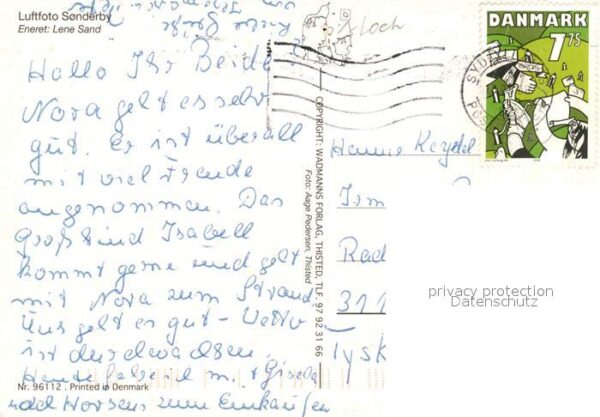 Luftfoto Sønderby
Eneret: Lene Sand
Loch
DANMARK
7 75
SYDJ
Hallo Ihr Beide
Nora geht es sehr
gut. Er ist überall
mit viel Freude
angenommen. Das
Großkind Isabell
kommt gerne und geht
mit Nora zum Strand
Uns geht es gut - Wetter
ist durchwachsen.
Heute fahren m. + Gisela
nach Horsens zum Einkaufen
Nr. 96112. Printed in Denmark
COPYRIGHT: WADMANNS FORLAG, THISTED, TLF. 97 92 31 66
Foto: Aage Pedersen, Thisted
Hannie
Irm
Rad
311
Tysk
privacy protection
Datenschutz